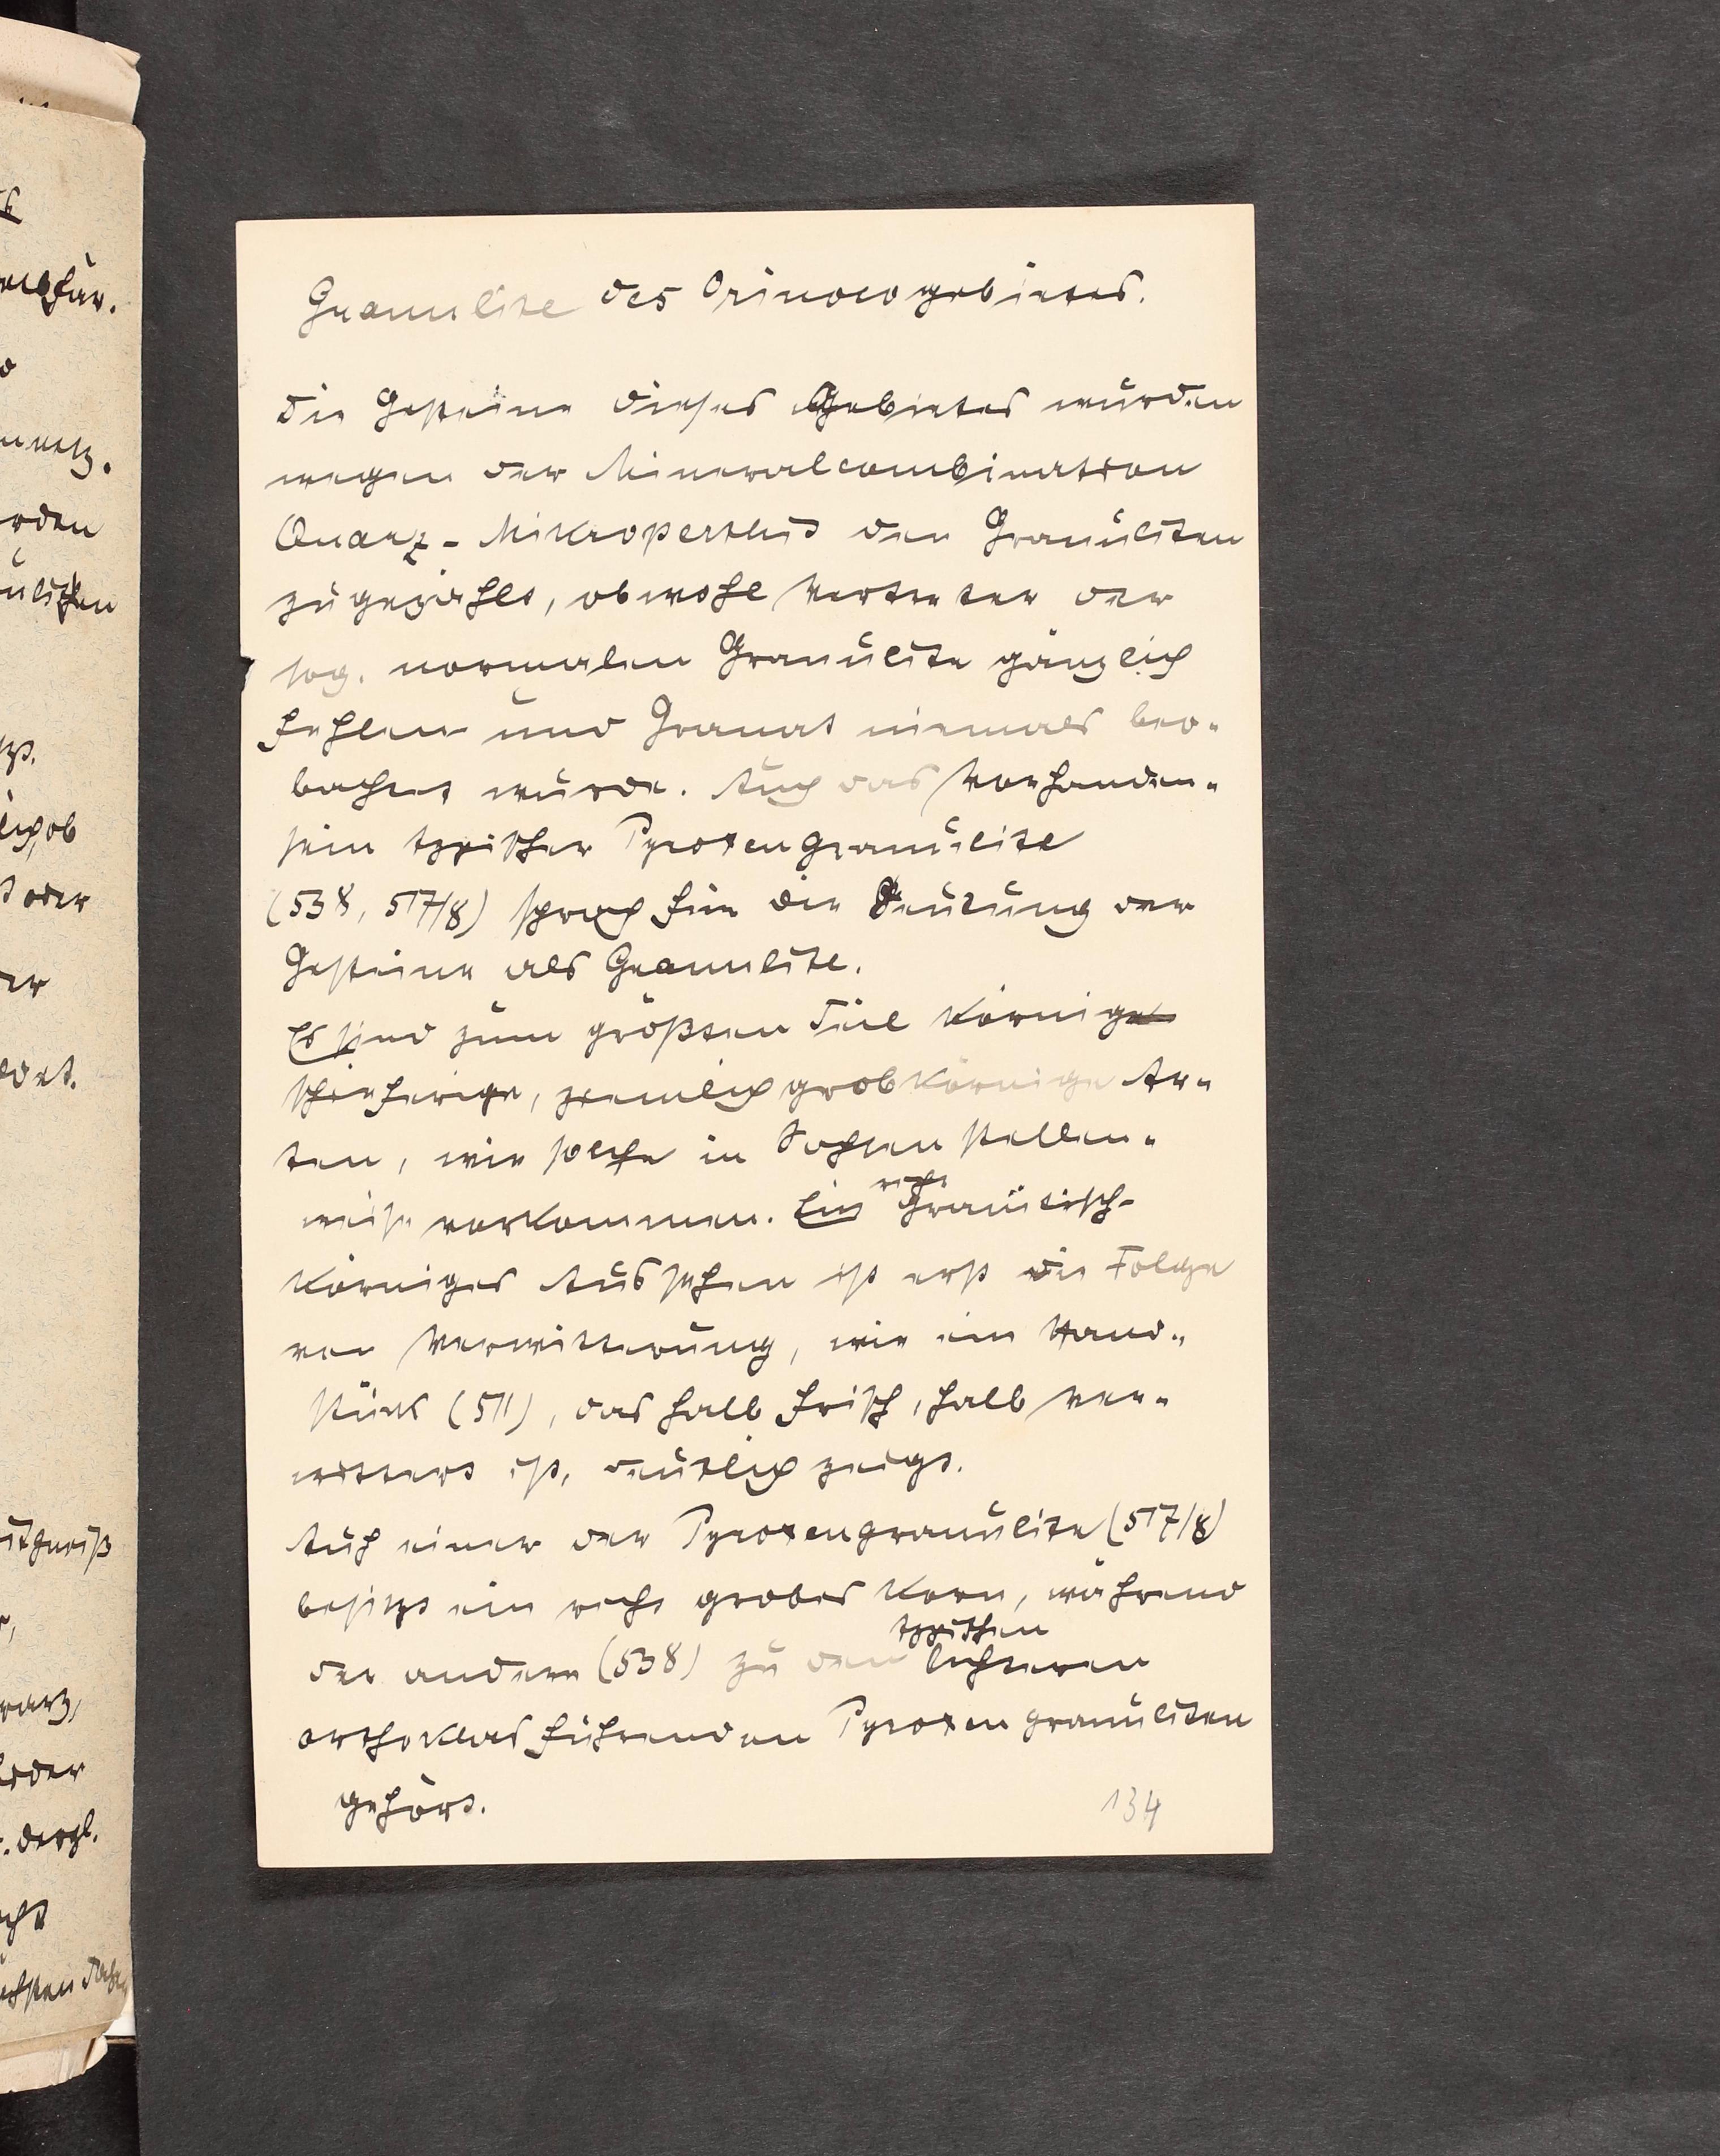 Granulite des Orinocogebietes.
Die Gesteine dieses Gebietes wurden
wegen der Mineralcombination
Quarz-Mikroperthit den Granuliten
zugezählt, obwohl Vertreter der
sog. normalen Granulite gänzlich
fehlen und Granat niemals beo-
bachtet wurde. Auch das Vorhanden-
sein typischer Pyroxengranulite
(538, 517/8) sprach für die Deutung der
Gesteine als Granulite.
Es sind zum größten Teil körnig
schiefrige, ziemlich grobkörnige Ar-
ten, wie solche in Sachsen stellen-
weise vorkommen. Ein
Granulitisch-
körniges Aussehen ist erst die Folge
von Verwitterung, wie ein Hand-
stück (511), das halb frisch, halb ver-
wittert ist, deutlich zeigt.
Auch einer der Pyroxengranulite (517/8)
besitzt ein recht grobes Korn, während
typischen
der andere (538) zu den lichteren
orthoklasführenden Pyroxengranuliten
gehört.
134